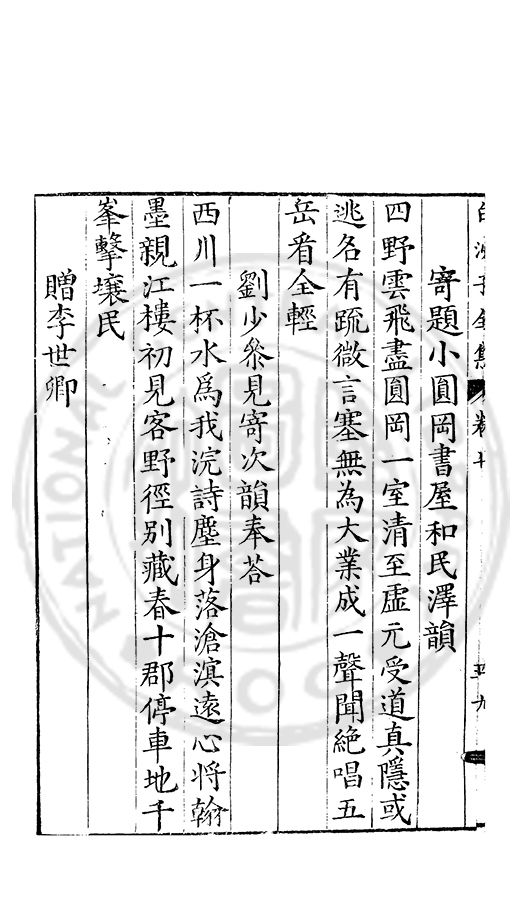 白沙子全集 卷十 五九
寄題小圓岡書屋和民澤韻
四野雲飛盡圓岡一室清至虛元受道真隱或
逃名有䟽微言塞無為大業成一聲聞絶唱五
岳看全輕
劉少叅見寄次韻奉荅
西川一杯水爲我浣詩塵身落滄溟遠心將翰
墨親江樓初見客野徑別藏春十郡停車地千
峯擊壤民
贈李世卿
NATIONAL